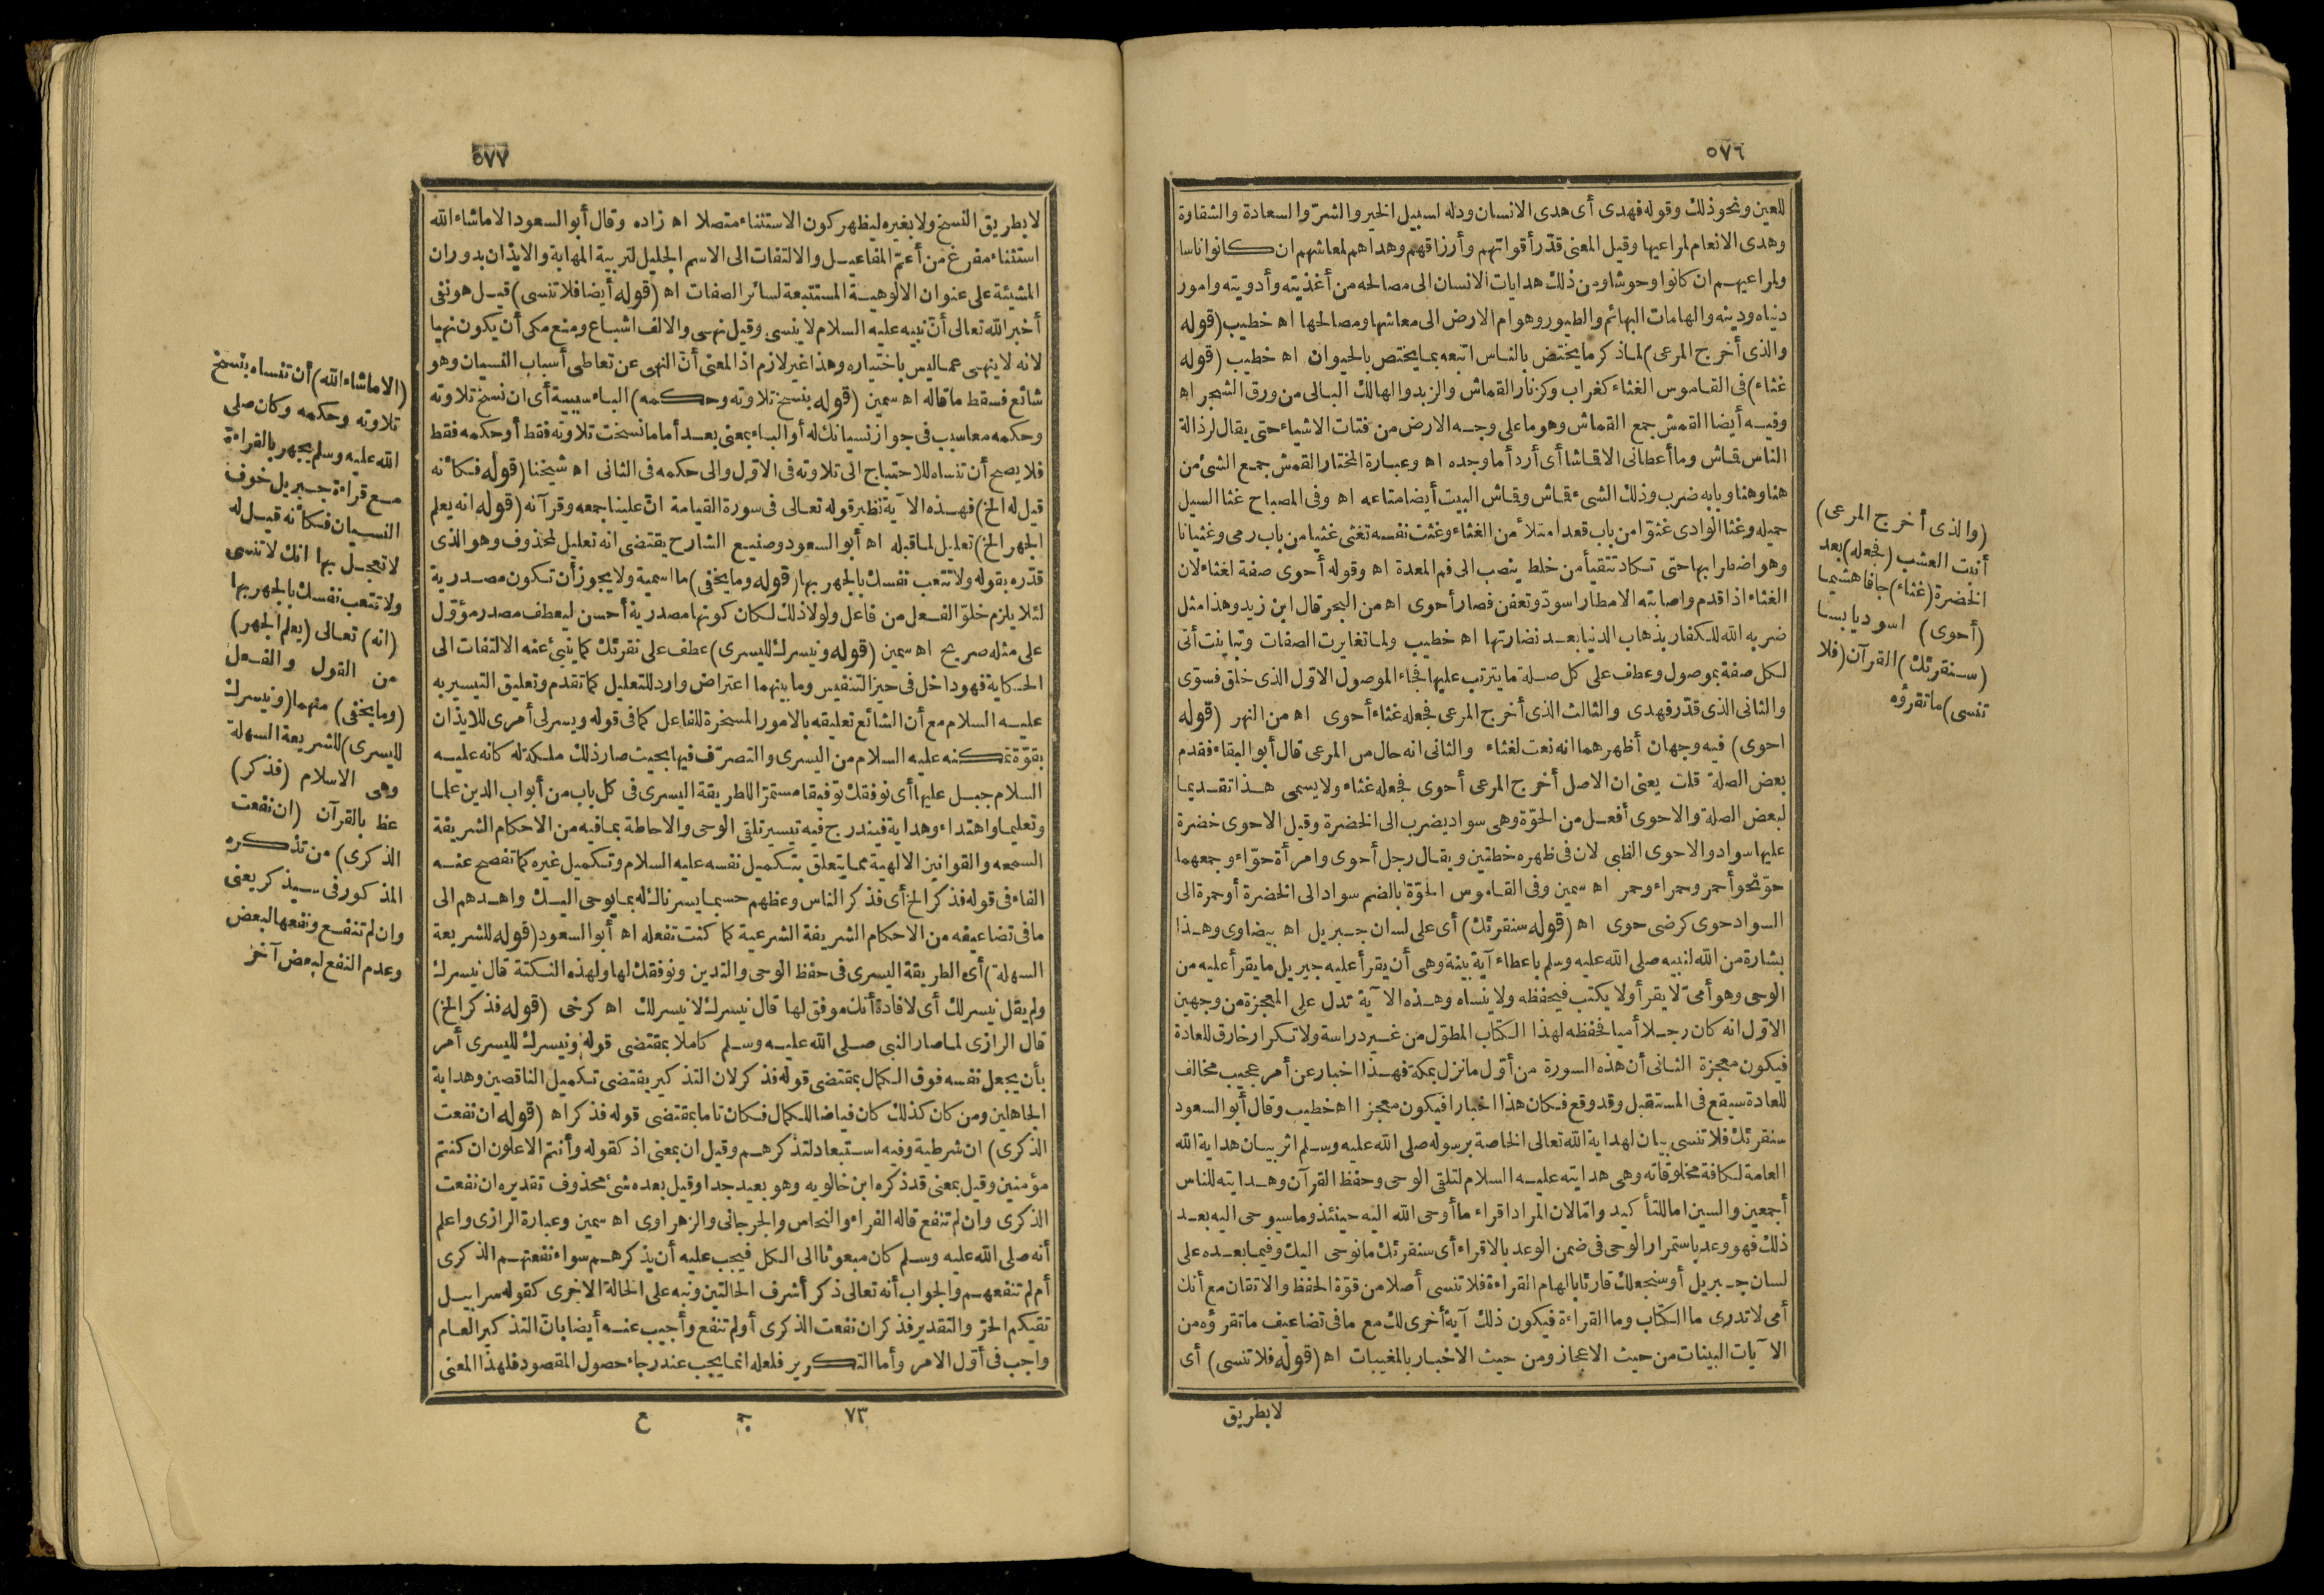 ٥٧٦
للعين ونحو ذلك وقوله فهدى أى هدى الانسان ودله لسبيل الخير والشرّ والسعادة والشقاوة
وهدى الانعام لمراعيها وقيل المعنى قدّر أقواتهم وأرزاقهم وهداهم لمعاشهم ان كانوا ناسا
ولمراعيهم ان كانوا وحوشا ومن ذلك هدايات الانسان الى مصالحه من أغذيته وأدويته وامور
دنياه ودينه والهامات البهائم والطيور وهوام الارض الى معاشها ومصالحها اه خطيب (قوله
والذى أخرج المرعى) لماذكر ما يختص بالناس اتبعه بما يختص بالحيوان اه خطيب (قوله
غثاء) فى القاموس الغثاء كغراب وكزنار القماش والزبد والهالك البالى من ورق الشجر اه
وفيه أيضا القمش جمع القماش وهو ما على وجه الارض من فتات الاشياء حتى يقال لرذالة
الناس قماش وما أعطانى الا قماشا أى أردأ ما وجده اه وعبارة المختار القمش جمع الشئ من
هنا وهنا وبابه ضرب وذلك الشىء قماش وقماش البيت أيضا متاعه اه وفى المصباح غثا السيل
حميله وغثا الوادى غثوّا من باب قعد امتلأ من الغثاء وغثت نفسه تغثى غثيا من باب رمى وغثيانا
وهو اضطرابها حتى تكاد تتقيأ من خلط ينصب الى فم المعدة اه وقوله أحوى صفة لغثاء لان
الغثاء اذا قدم واصابته الامطار اسودّ وتعفن فصار أحوى اه من البحر قال ابن زيد وهذا مثل
ضربه الله للكفار بذهاب الدنيا بعد نضارتها اه خطيب ولما تغايرت الصفات وتباينت أتى
لكل صفة بموصول وعطف على كل صلة ما يترتب عليها فجاء الموصول الاوّل الذى خلق فسوّى
والثانى الذى قدّر فهدى والثالث الذى أخرج المرعى فجعله غثاء أحوى اه من النهر (قوله
احوى) فيه وجهان أظهرهما انه نعت لغثاء والثانى انه حال من المرعى قال أبو البقاء فقدم
بعض الصلة قلت يعنى ان الاصل أخرج المرعى أحوى فجعله غثاء ولا يسمى هذا تقديما
لبعض الصلة والاحوى أفعل من الحوّة وهى سواد يضرب الى الخضرة وقيل الاحوى خضرة
عليها سواد والاحوى الظبى لان فى ظهره خطتين ويقال رجل أحوى وامرأة حوّاء وجمعهما
حوّ نحو أحمر وحمراء وحمر اه سمين وفى القاموس الحوّة بالضم سواد الى الخضرة أو حمرة الى
السواد حوى كرضى حوى اه (قوله سنقرئك) أى على لسان جبريل اه بيضاوى وهذا
بشارة من الله لنبيه صلى الله عليه وسلم باعطاء آية بينة وهى أن يقرأ عليه جبريل ما يقرأ عليه من
الوحى وهو أمىّ لا يقرأ ولا يكتب فيحفظه ولا ينساه وهذه الآية تدل على المعجزة من وجهين
الاوّل انه كان رجلا أميا فحفظه لهذا الكتاب المطوّل من غير دراسة ولا تكرار خارق للعادة
فيكون معجزة الثانى أن هذه السورة من أوّل ما نزل بمكة فهذا اخبار عن أمر عجيب مخالف
للعادة سيقع فى المستقبل وقد وقع فكان هذا اخبارا فيكون معجزا اه خطيب وقال أبو السعود
سنقرئك فلا تنسى بيان لهداية الله تعالى الخاصة برسوله صلى الله عليه وسلم اثر بيان هداية الله
العامة لكافة مخلوقاته وهى هدايته عليه السلام لتلقى الوحى وحفظ القرآن وهدايته للناس
أجمعين والسين اما للتأكيد واما لان المراد اقراء ما أوحى الله اليه حينئذ وما سيوحى اليه بعد
ذلك فهو وعد باستمرار الوحى فى ضمن الوعد بالاقراء أى سنقرئك ما نوحى اليك وفيما بعده على
لسان جبريل أو سنجعلك قارئا بالهام القراءة فلا تنسى أصلا من قوّة الحفظ والاتقان مع أنك
أمى لا تدرى ما الكتاب وما القراءة فيكون ذلك آية أخرى لك مع ما فى تضاعيف ما تقرؤه من
الآيات البينات من حيث الاعجاز ومن حيث الاخبار بالمغيبات اه (قوله فلا تنسى) أى
لابطريق
(والذى أخرج المرعى)
أنبت العشب (فجعله) بعد
الخضرة (غثاء) جافا هشيما
(أحوى) اسود يابسا
(سنقرئك) القرآن (فلا
تنسى) ما تقرؤه
٥٧٧
لا بطريق النسخ ولا بغيره ليظهر كون الاستثناء متصلا اه زاده وقال أبو السعود الا ماشاء الله
استثناء مفرغ من أعمّ المفاعيل والالتفات الى الاسم الجليل لتربية المهابة والايذان بدوران
المشيئة على عنوان الالوهية المستتبعة لسائر الصفات اه (قوله أيضا فلا تنسى) قيل هو نفى
أخبر الله تعالى أنّ نبيه عليه السلام لا ينسى وقيل نهى والالف اشباع ومنع مكى أن يكون نهيا
لانه لا ينهى عما ليس باختياره وهذا غير لازم اذ المعنى أنّ النهى عن تعاطى أسباب النسيان وهو
شائع فسقط ما قاله اه سمين (قوله بنسخ تلاوته وحكمه) الباء سببية أى ان نسخ تلاوته
وحكمه معا سبب فى جواز نسيانك له أو الباء بمعنى بعد أما ما نسخت تلاوته فقط أو حكمه فقط
فلا يصح أن تنساه للاحتياج الى تلاوته فى الاوّل والى حكمه فى الثانى اه شيخنا (قوله فكأنه
قيل له الخ) فهذه الآية نظير قوله تعالى فى سورة القيامة انّ علينا جمعه وقرآنه (قوله انه يعلم
الجهر الخ) تعليل لما قبله اه أبو السعود وصنيع الشارح يقتضى انه تعليل لمحذوف وهو الذى
قدّره بقوله ولا تتعب نفسك بالجهر بها (قوله وما يخفى) ما اسمية ولا يجوز أن تكون مصدرية
لئلا يلزم خلوّ الفعل من فاعل ولولا ذلك لكان كونها مصدرية أحسن ليعطف مصدر مؤوّل
على مثله صريح اه سمين (قوله ونيسرك لليسرى) عطف على نقرئك كما ينبئ عنه الالتفات الى
الحكاية فهو داخل فى حيز التنفيس وما بينهما اعتراض وارد للتعليل كما تقدم وتعليق التيسير به
عليه السلام مع أن الشائع تعليقه بالامور المسخرة للفاعل كما فى قوله ويسر لى أمرى للايذان
بقوّة تمكنه عليه السلام من اليسرى والتصرّف فيها بحيث صار ذلك ملكة له كانه عليه
السلام جبل عليها أى نوفقك توفيقا مستمرّا للطريقة اليسرى فى كل باب من أبواب الدين علما
وتعليما واهتداء وهداية فيندرج فيه تيسير تلقى الوحى والاحاطة بما فيه من الاحكام الشريفة
السمحه والقوانين الالهية مما يتعلق بتكميل نفسه عليه السلام وتكميل غيره كما تفصح عنه
الفاء فى قوله فذكر الخ أى فذكر الناس وعظهم حسبما يسرناك له بما يوحى اليك واهدهم الى
ما فى تضاعيفه من الاحكام الشريفة الشرعية كما كنت تفعله اه أبو السعود (قوله للشريعة
السهلة) أى الطريقة اليسرى فى حفظ الوحى والتدين ونوفقك لها ولهذه النكتة قال نيسرك
ولم يقل نيسر لك أى لافادة أنك موفق لها قال نيسرك لا نيسر لك اه كرخى (قوله فذكر الخ)
قال الرازى لما صار النبى صلى الله عليه وسلم كاملا بمقتضى قوله ونيسرك لليسرى أمر
بأن يجعل نفسه فوق الكمال بمقتضى قوله فذكر لان التذكير يقتضى تكميل الناقصين وهداية
الجاهلين ومن كان كذلك كان فياضا للكمال فكان تاما بمقتضى قوله فذكر اه (قوله ان نفعت
الذكرى) ان شرطية وفيه استبعاد لتذكرهم وقيل ان بمعنى اذ كقوله وأنتم الاعلون ان كنتم
مؤمنين وقيل بمعنى قد ذكره ابن خالويه وهو بعيد جدا وقيل بعده شئ محذوف تقديره ان نفعت
الذكرى وان لم تنفع قاله الفراء والنحاس والجرجانى والزهراوى اه سمين وعبارة الرازى واعلم
أنه صلى الله عليه وسلم كان مبعوثا الى الكل فيجب عليه أن يذكرهم سواء نفعتهم الذكرى
أم لم تنفعهم والجواب أنه تعالى ذكر أشرف الحالتين ونبه على الحالة الاخرى كقوله سرابيل
تقيكم الحرّ والتقدير فذكر ان نفعت الذكرى أولم تنفع وأجيب عنه أيضا بانّ التذكير العام
واجب فى أوّل الامر وأما التكرير فلعله انما يجب عند رجاء حصول المقصود فلهذا المعنى
٧٣ ج ع
(الا ماشاء الله) أن تنساه بنسخ
تلاوته وحكمه وكان صلى
الله عليه وسلم يجهر بالقراءة
مع قراءة جبريل خوف
النسيان فكأنه قيل له
لا تعجل بها انك لا تنسى
ولا تتعب نفسك بالجهر بها
(انه) تعالى (يعلم الجهر)
من القول والفعل
(وما يخفى) منهما (ونيسرك
لليسرى) للشريعة السهلة
وهى الاسلام (فذكر)
عظ بالقرآن (ان نفعت
الذكرى) من تذكره
المذكور فى سيذكر يعنى
وان لم تنفع ونفعها لبعض
وعدم النفع لبعض آخر